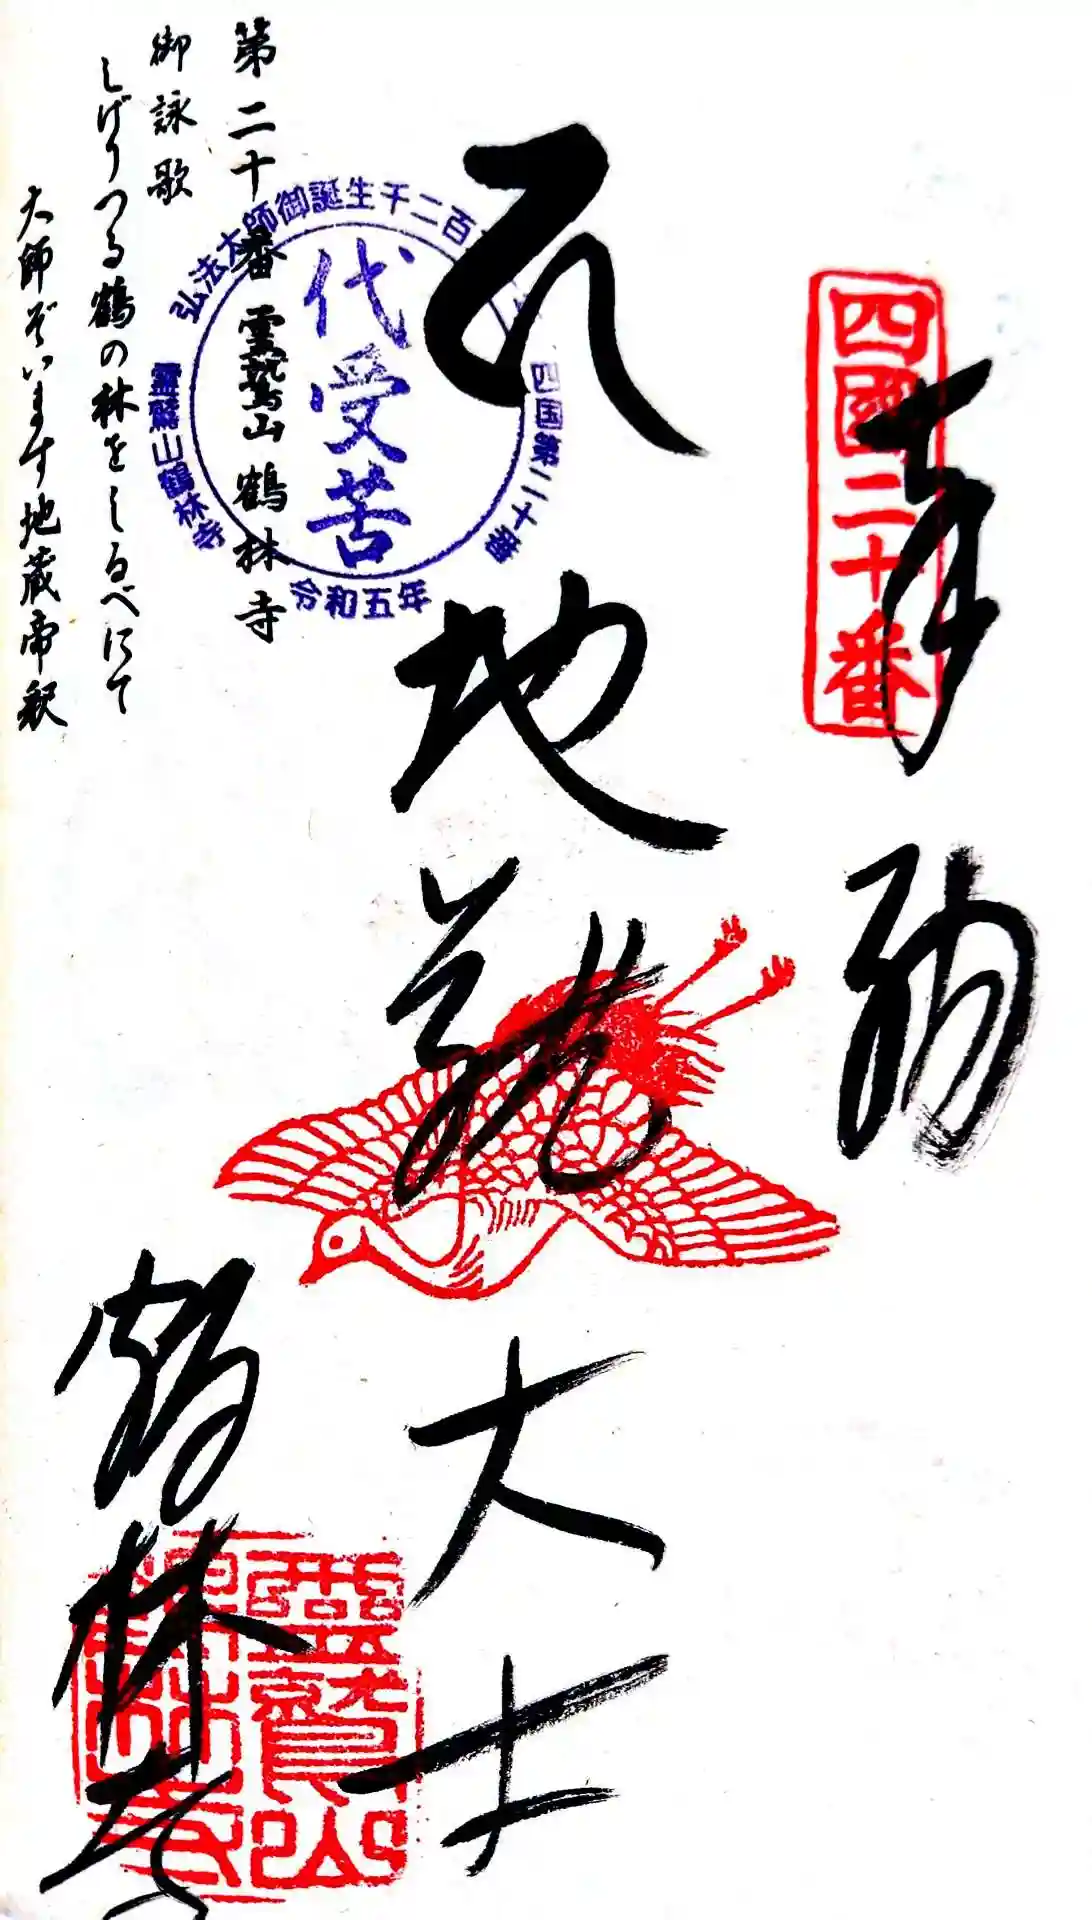 奉納
四國二十番
地蔵大士
鶴林寺
靈鷲山
鶴林寺
弘法大師御誕生千二百
四国第二十番
代受苦
霊鷲山鶴林寺
令和五年
第二十番 霊鷲山 鶴林寺
御詠歌
しげりつる鶴の林をしるべにて
大師ぞいます地蔵帝釈